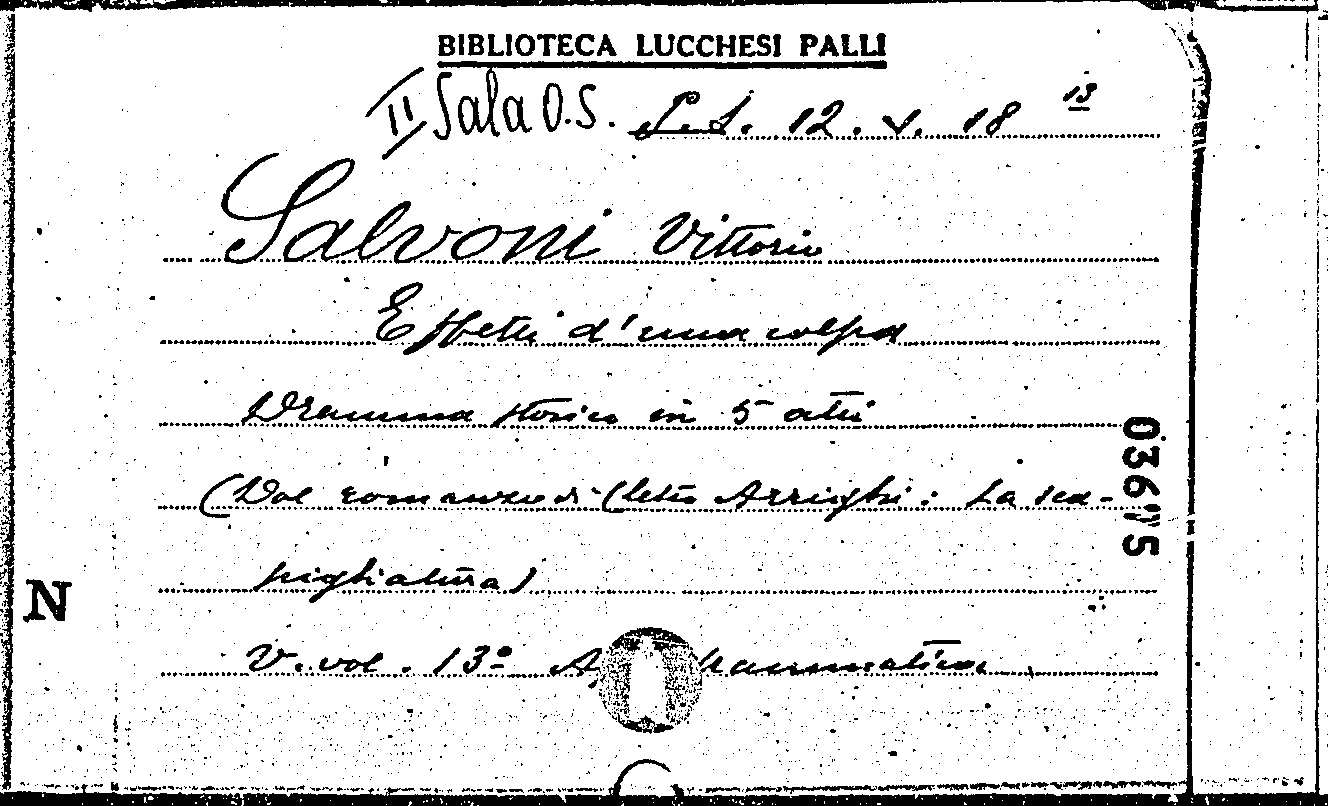 BIBLIOTECA LUCCHESI PALLI
II Sala O.S. 12. V. 18 13
Salvoni Vittorio
Effetti d'una colpa
Dramma storico in 5 atti
(Dal romanzo di Cletto Arrighi: La sca-
pigliatura)
V. vol. 13º
03675
N